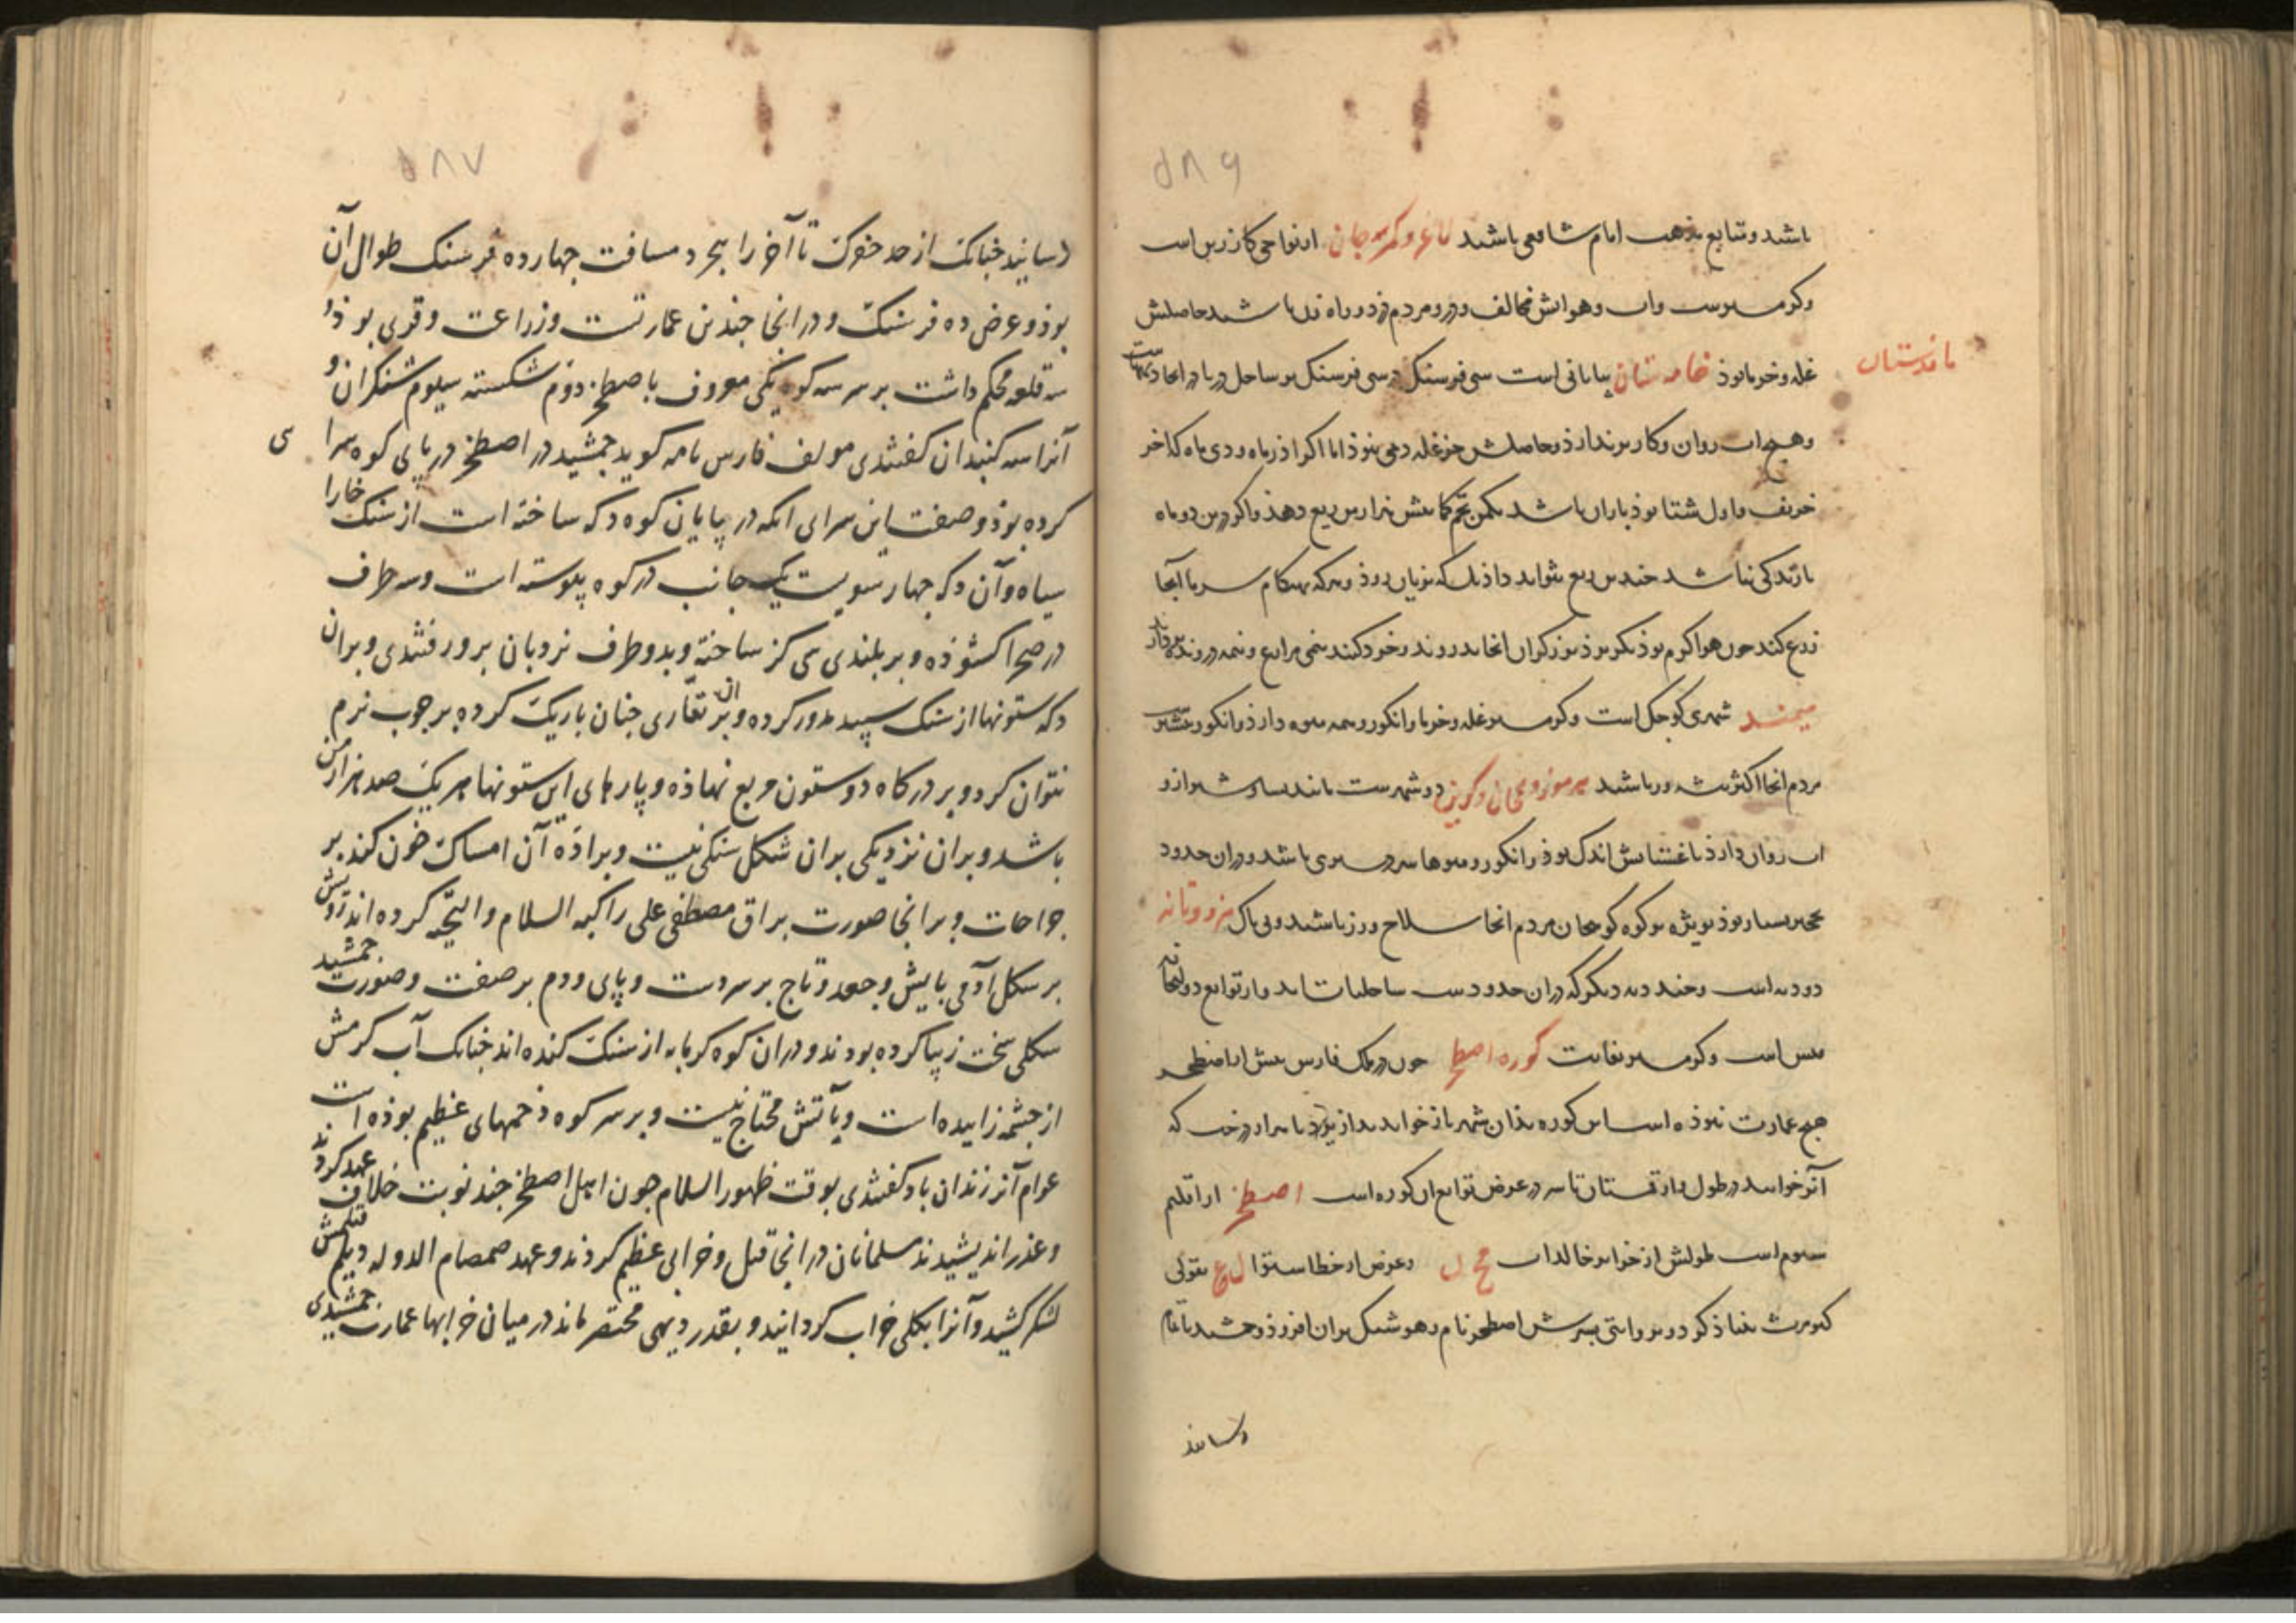 ۵۸۶
باشد و متابع مذهب امام شافعی باشند ماغر و کمرجان از نواحی کازرین است
و کرمسیرست و اب و هوایش مخالف و درو مردم جز دو ماه باشند حاصلش
ماندستان
غله و خرما بوذ بیابانی است سی فرسنک در سی فرسنک بر ساحل دریا و در انجا دیههاست
و هیچ اب روان و کاریز ندارذ و حاصلش جز غله دیمی نبوذ اما اکر اذر ماه و دی ماه که اخر
خریف و اول شتا بوذ باران باشد یکمن تخم کمابیش هزار من ریع دهذ و اکر درین دو ماه
بارندکی نباشد چندین ریع نتواند داذ بلک که بزیان روذ و هرکه بهنکام سرما انجا
زرع کند چون هوا کرم بوذ
میمند شهری کوچک است و کرمسیر غله و خرما و انکور و همه میوه دارذ و انکور بیشتر
مردم انجا اکثر پیشه ور باشند دو شهرست
اب روان دارذ باغستانش اندک بوذ و انکور و میوها سردسیری باشد و در ان حدود
نخجیر بسیار بوذ بویژه بر کوه کوجهان مردم انجا سلاح ورز باشند و بی باک
دو دیه است و چند دیه دیکر که در ان حدودست ساحلیات اند و از توابع
است و کرمسیر بغایت کوره اصطخر چون در ملک فارس پیش از اصطخر
هیچ عمارت نبوذه است این کوره بذان شهر باز خوانند از یزد تا هزار درخت که
در طول و از قهستان تا در عرض توابع ان کوره است اصطخر از اقلیم
سیوم است طولش از جزایر خالدات مح ل و عرض از خط استوا ل بقولی
کیومرث بنیاذ کرد و بر روایتی پسرش اصطخر نام و هوشنک بران افزوذ و جمشید باتمام
رسانید
۵۸۷
رسانید چنانک از حد خفرک تا آخر رامجرد مسافت جهارده فرسنک طول آن
بوذ و عرض ده فرسنک و در انجا چندین عمارتست و زراعت و قری بوذ و
سه قلعه محکم داشت بر سر سه کوه یکی معروف باصطخر دوم شکسته سیوم شنکران و
آنرا سه کنبدان کفتندی مولف فارس نامه کوید جمشید در اصطخر در پای کوه سرا
ی
کرده بوذ و صفت این سرای انکه در پایان کوه دکه ساخته است از سنک خارا
سیاه و آن دکه جهار سویست یک جانب در کوه پیوسته است و سه طرف
در صحرا کشوذه و بر بلندی سی کز ساخته و بدو طرف نردبان برو رفتندی و بران
دکه ستونها از سنک سپید مدور کرده و بر ان نقاری چنان باریک کرده بر جوب نرم
نتوان کرد و بر درکاه دو ستون مربع نهاذه و پارهای این ستونها هر یک صد هزار من
باشد و بران نزدیکی بران شکل سنکی نیست و براذه آن امساک خون کند بر
جراحات و بر انجا صورت براق مصطفی علی راکبه السلام و التحیه کرده اند رویش
بر شکل آدمی با ریش و جعد و تاج بر سر دست و پای و دم بر صفت و صورت جمشید
شکلی سخت زیبا کرده بودند و در ان کوه کرمابه از سنک کنده اند چنانک آب کرمش
از جشمه زاییده است و بآتش محتاج نیست و بر سر کوه دخمهای عظیم بوذه است
عوام آنرا زندان باد کفتندی بوقت ظهور السلام چون اهل اصطخر چند نوبت خلاف عهد کردند
و غدر اندیشیدند مسلمانان در انجا قتل و خرابی عظیم کردند و عهد صمصام الدوله دیلم قتلمش
لشکر کشید و آنرا بکلی خراب کردانید و بقدر دیهی مختصر ماند در میان خرابها عمارت جمشیدی